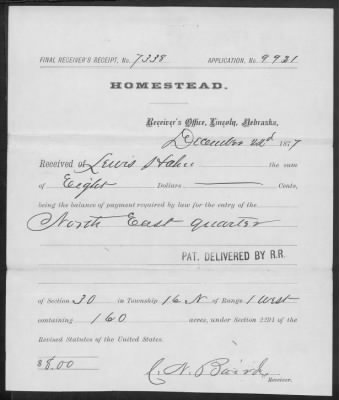 FINAL RECEIVER'S RECEIPT, No. 7338. APPLICATION, No. 9921
HOMESTEAD.
Receiver's Office, Lincoln, Nebraska,
December 1877
Received of Lewis Hahn the sum
of Eight Dollars Cents,
being the balance of payment required by law for the entry of the
North East quarter
PAT. DELIVERED BY R.R.
of Section 30 in Township 16 N of Range 1 West
containing 160 acres, under Section 2291 of the
Revised Statutes of the United States.
$8.00
C. N. Baird
Receiver.